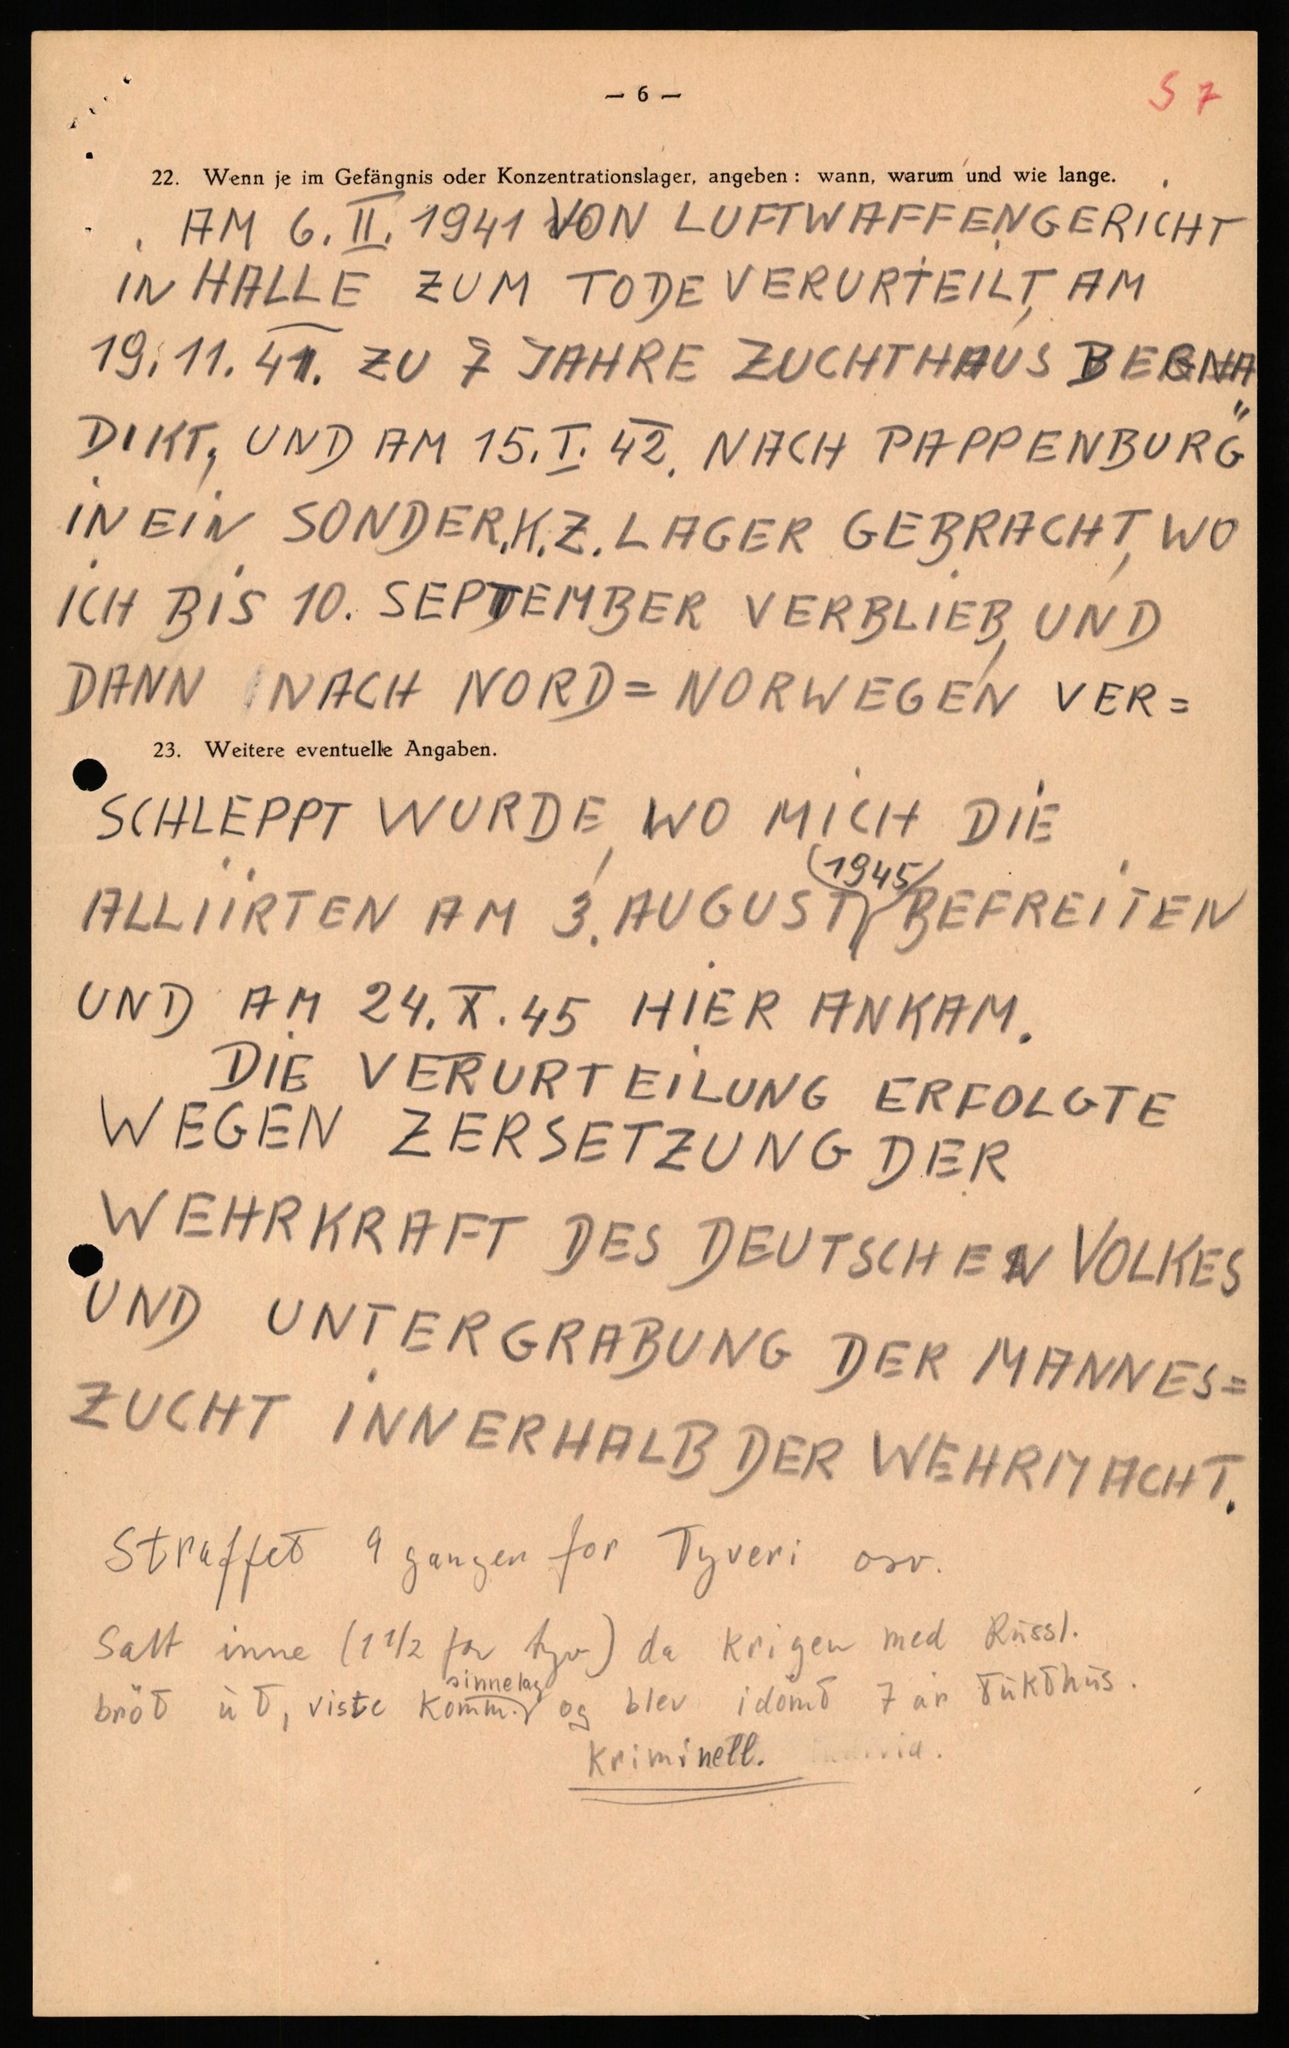 — 6 —
S 7
22. Wenn je im Gefängnis oder Konzentrationslager, angeben: wann, warum und wie lange.
AM 6. II. 1941 VON LUFTWAFFENGERICHT
IN HALLE ZUM TODE VERURTEILT, AM
19. 11. 41. ZU 7 JAHRE ZUCHTHAUS BEGNA
DIKT, UND AM 15. I. 42. NACH PAPPENBURG
IN EIN SONDER.K.Z. LAGER GEBRACHT, WO
ICH BIS 10. SEPTEMBER VERBLIEB, UND
DANN NACH NORD = NORWEGEN VER =
23. Weitere eventuelle Angaben.
SCHLEPPT WURDE, WO MICH DIE
ALLIIRTEN AM 3. AUGUST (1945) BEFREITEN
UND AM 24. X. 45 HIER ANKAM.
DIE VERURTEILUNG ERFOLGTE
WEGEN ZERSETZUNG DER
WEHRKRAFT DES DEUTSCHEN VOLKES
UND UNTERGRABUNG DER MANNES =
ZUCHT INNERHALB DER WEHRMACHT.
Straffet 9 gangen for Tyveri osv.
Satt inne (1 1/2 for tyv) da krigen med Russl.
bröt ut, viste komm. sinnelag og blev idömt 7 år tukthus.
Kriminell.